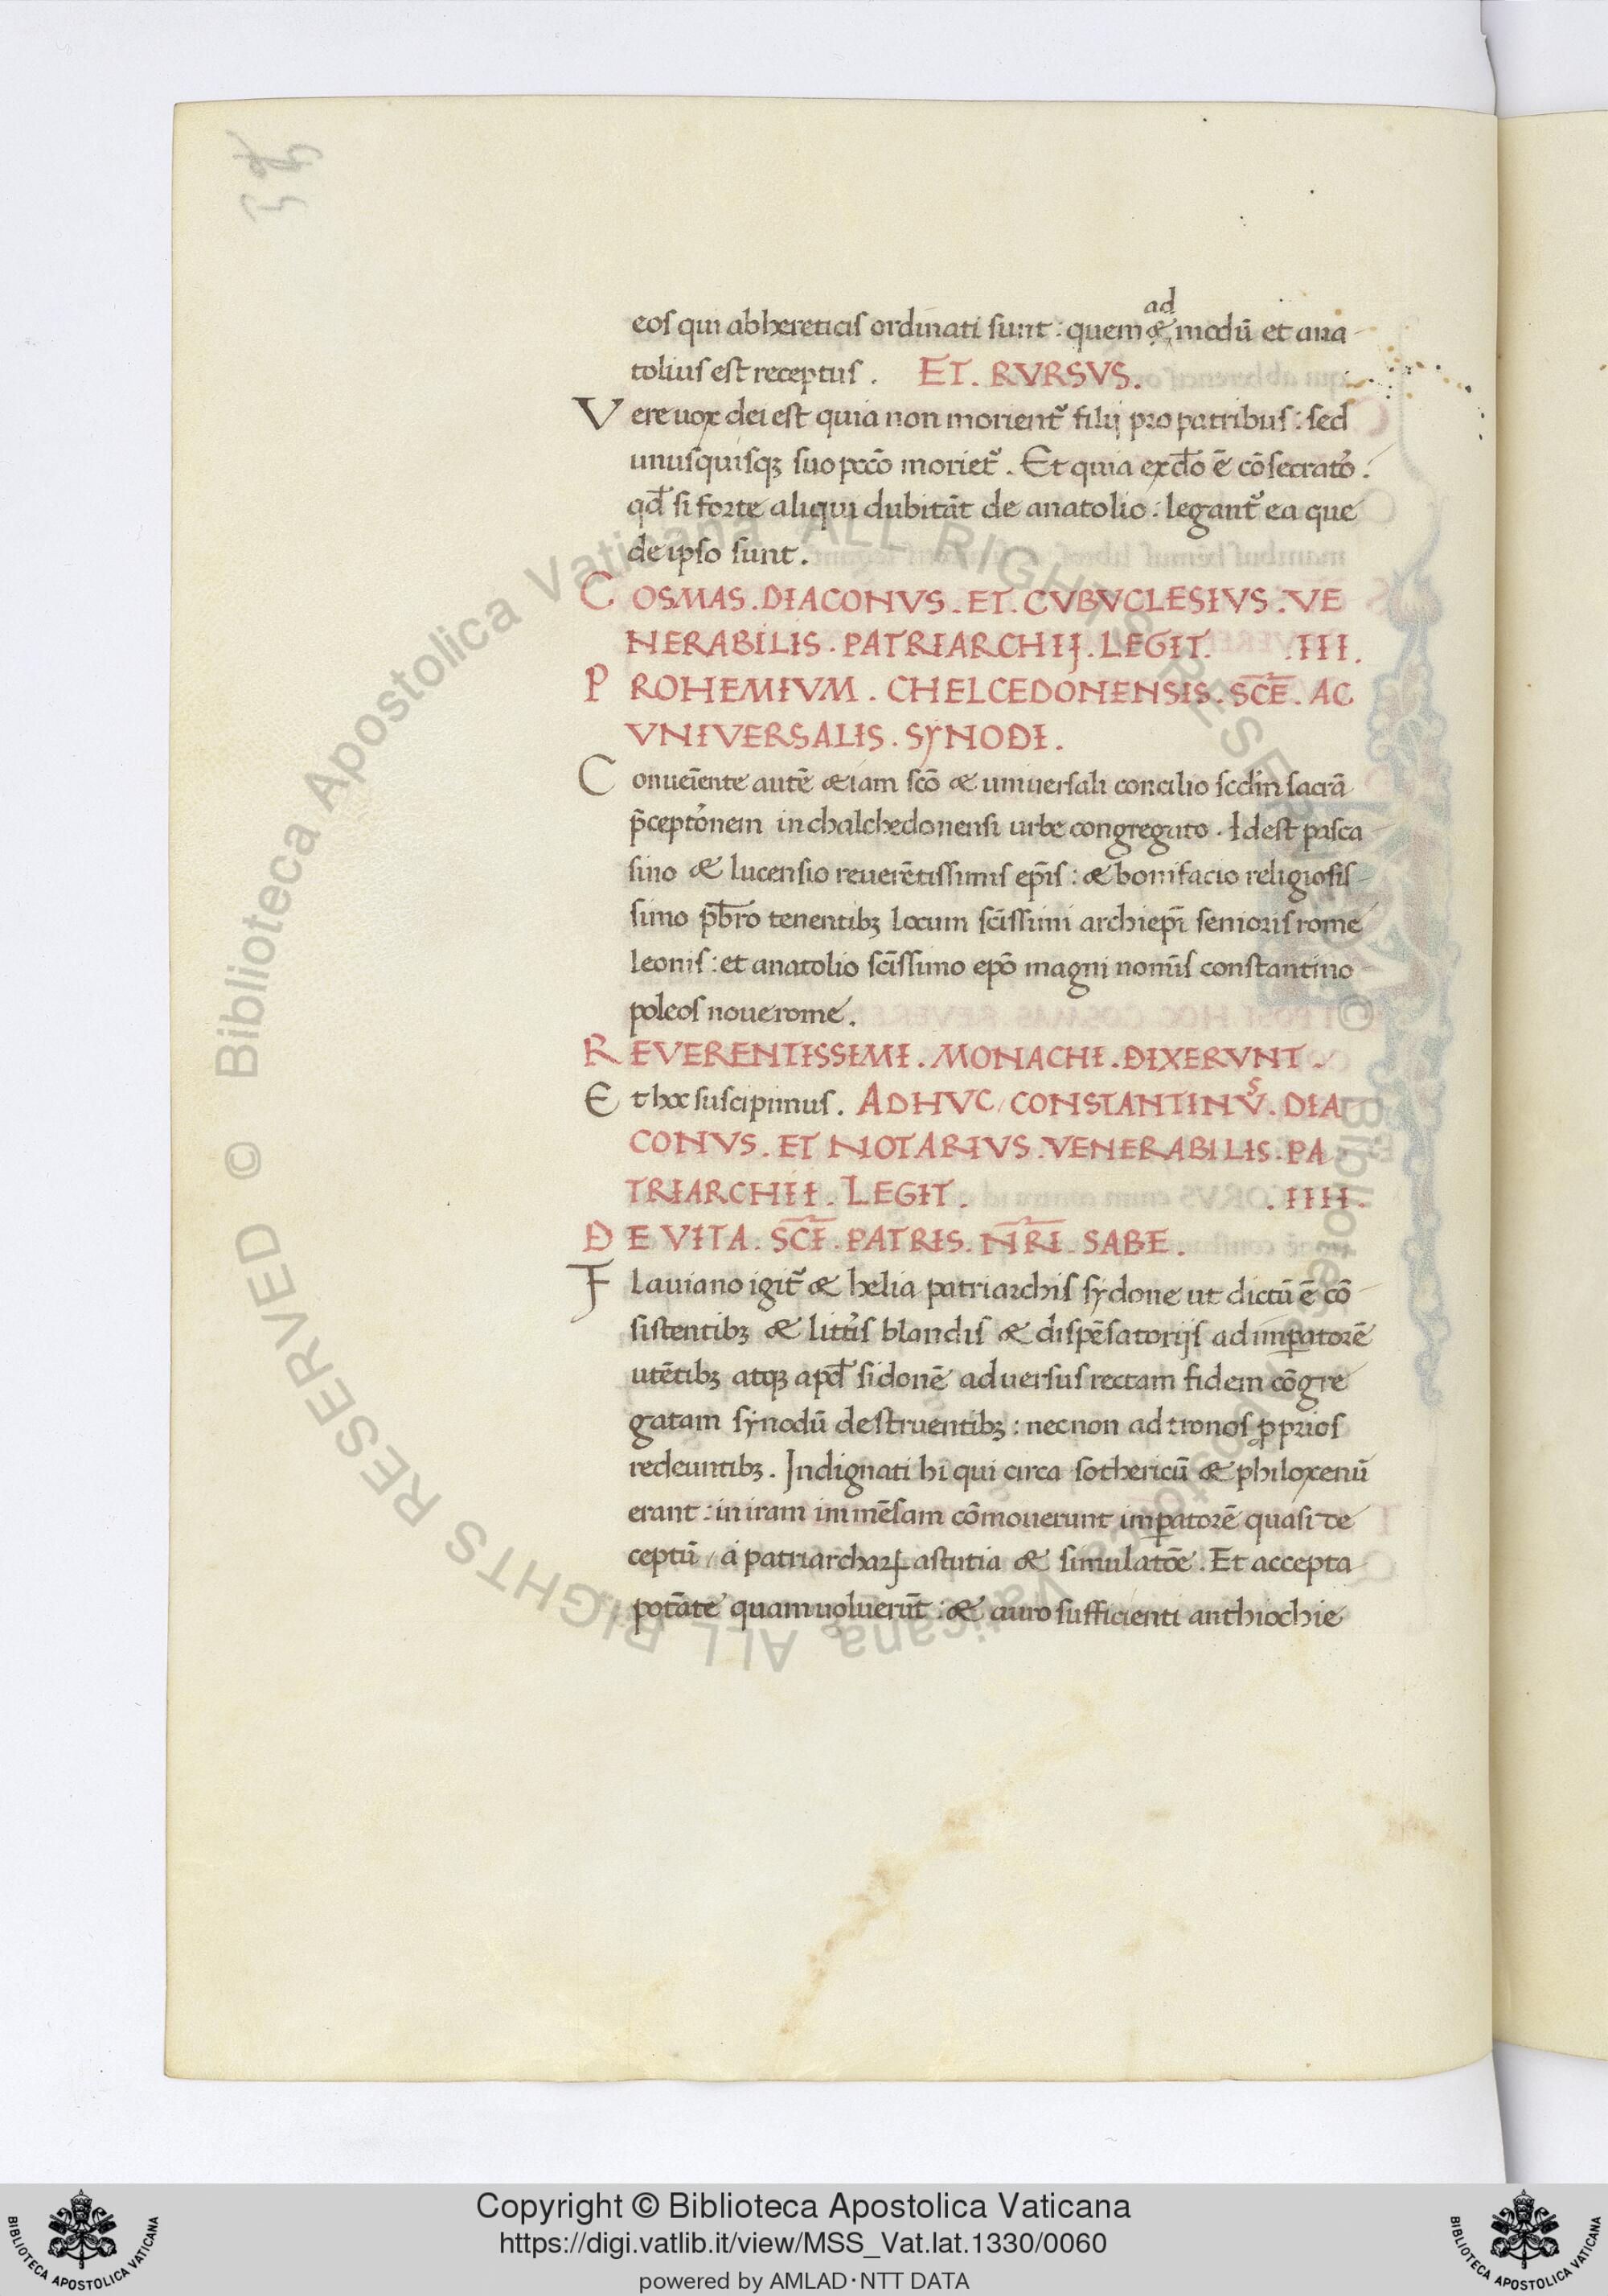 eos qui ab hereticis ordinati sunt : quem ad & modū et ana-
tolius est receptus . ET . RVRSVS .
Vere uox dei est quia non morient᷑ filij pro patribus : sed
unusquisq; suo pccō moriet᷑ . Et quia ex dō ē cōsecrato᷑ .
qd̄ si forte aliqui dubitāt de anatolio : legant᷑ ea que
de ipso sunt .
COSMAS . DIACONVS . ET . CVBVCLESIVS . VE
NERABILIS . PATRIARCHIJ . LEGIT . .III.
PROHEMIVM . CHELCEDONENSIS . SCE . AC
VNIVERSALIS . SYNODI .
Conueīente autē & iam scō & uniuersali concilio scdm̄ sacrā
p̄cepto᷑nem in chalchedonensi urbe congregato . Id est pasca
sino & lucensio reuerētissimis ep̄is : & bonifacio religiosis-
simo pb̄ro tenentib; locum sc̄issimi archiepī senioris rome
leonis : et anatolio sc̄issimo epō magni nomīs constantino
poleos noue rome .
REVERENTISSIMI . MONACHI . DIXERVNT .
Et hoc suscipimus . ADHVC / CONSTANTINVS . DIA
CONVS . ET NOTARIVS . VENERABILIS . PA
TRIARCHII . LEGIT . .IIII.
DE VITA . SCI . PATRIS . NRI . SABE .
Flauiano igit᷑ & helia patriarchis sydone ut dictū ē cō-
sistentib; & litt᷑is blandis & dispēsatorijs ad imꝑatorē
utētib; atq; apd̄ sidonē aduersus rectam fidem cōgre
gatam synodū destruentib; : nec non ad tronos ꝓprios
redeuntib; . Indignati hi qui circa sothericū & philoxenū
erant : in iram immēsam cōmouerunt imꝑatorē quasi de
ceptū / a patriarchaꝝ astutia & simulatōe . Et accepta
potāte quam uoluerūt : & auro sufficienti anthiochie
Copyright © Biblioteca Apostolica Vaticana
https://digi.vatlib.it/view/MSS_Vat.lat.1330/0060
powered by AMLAD·NTT DATA